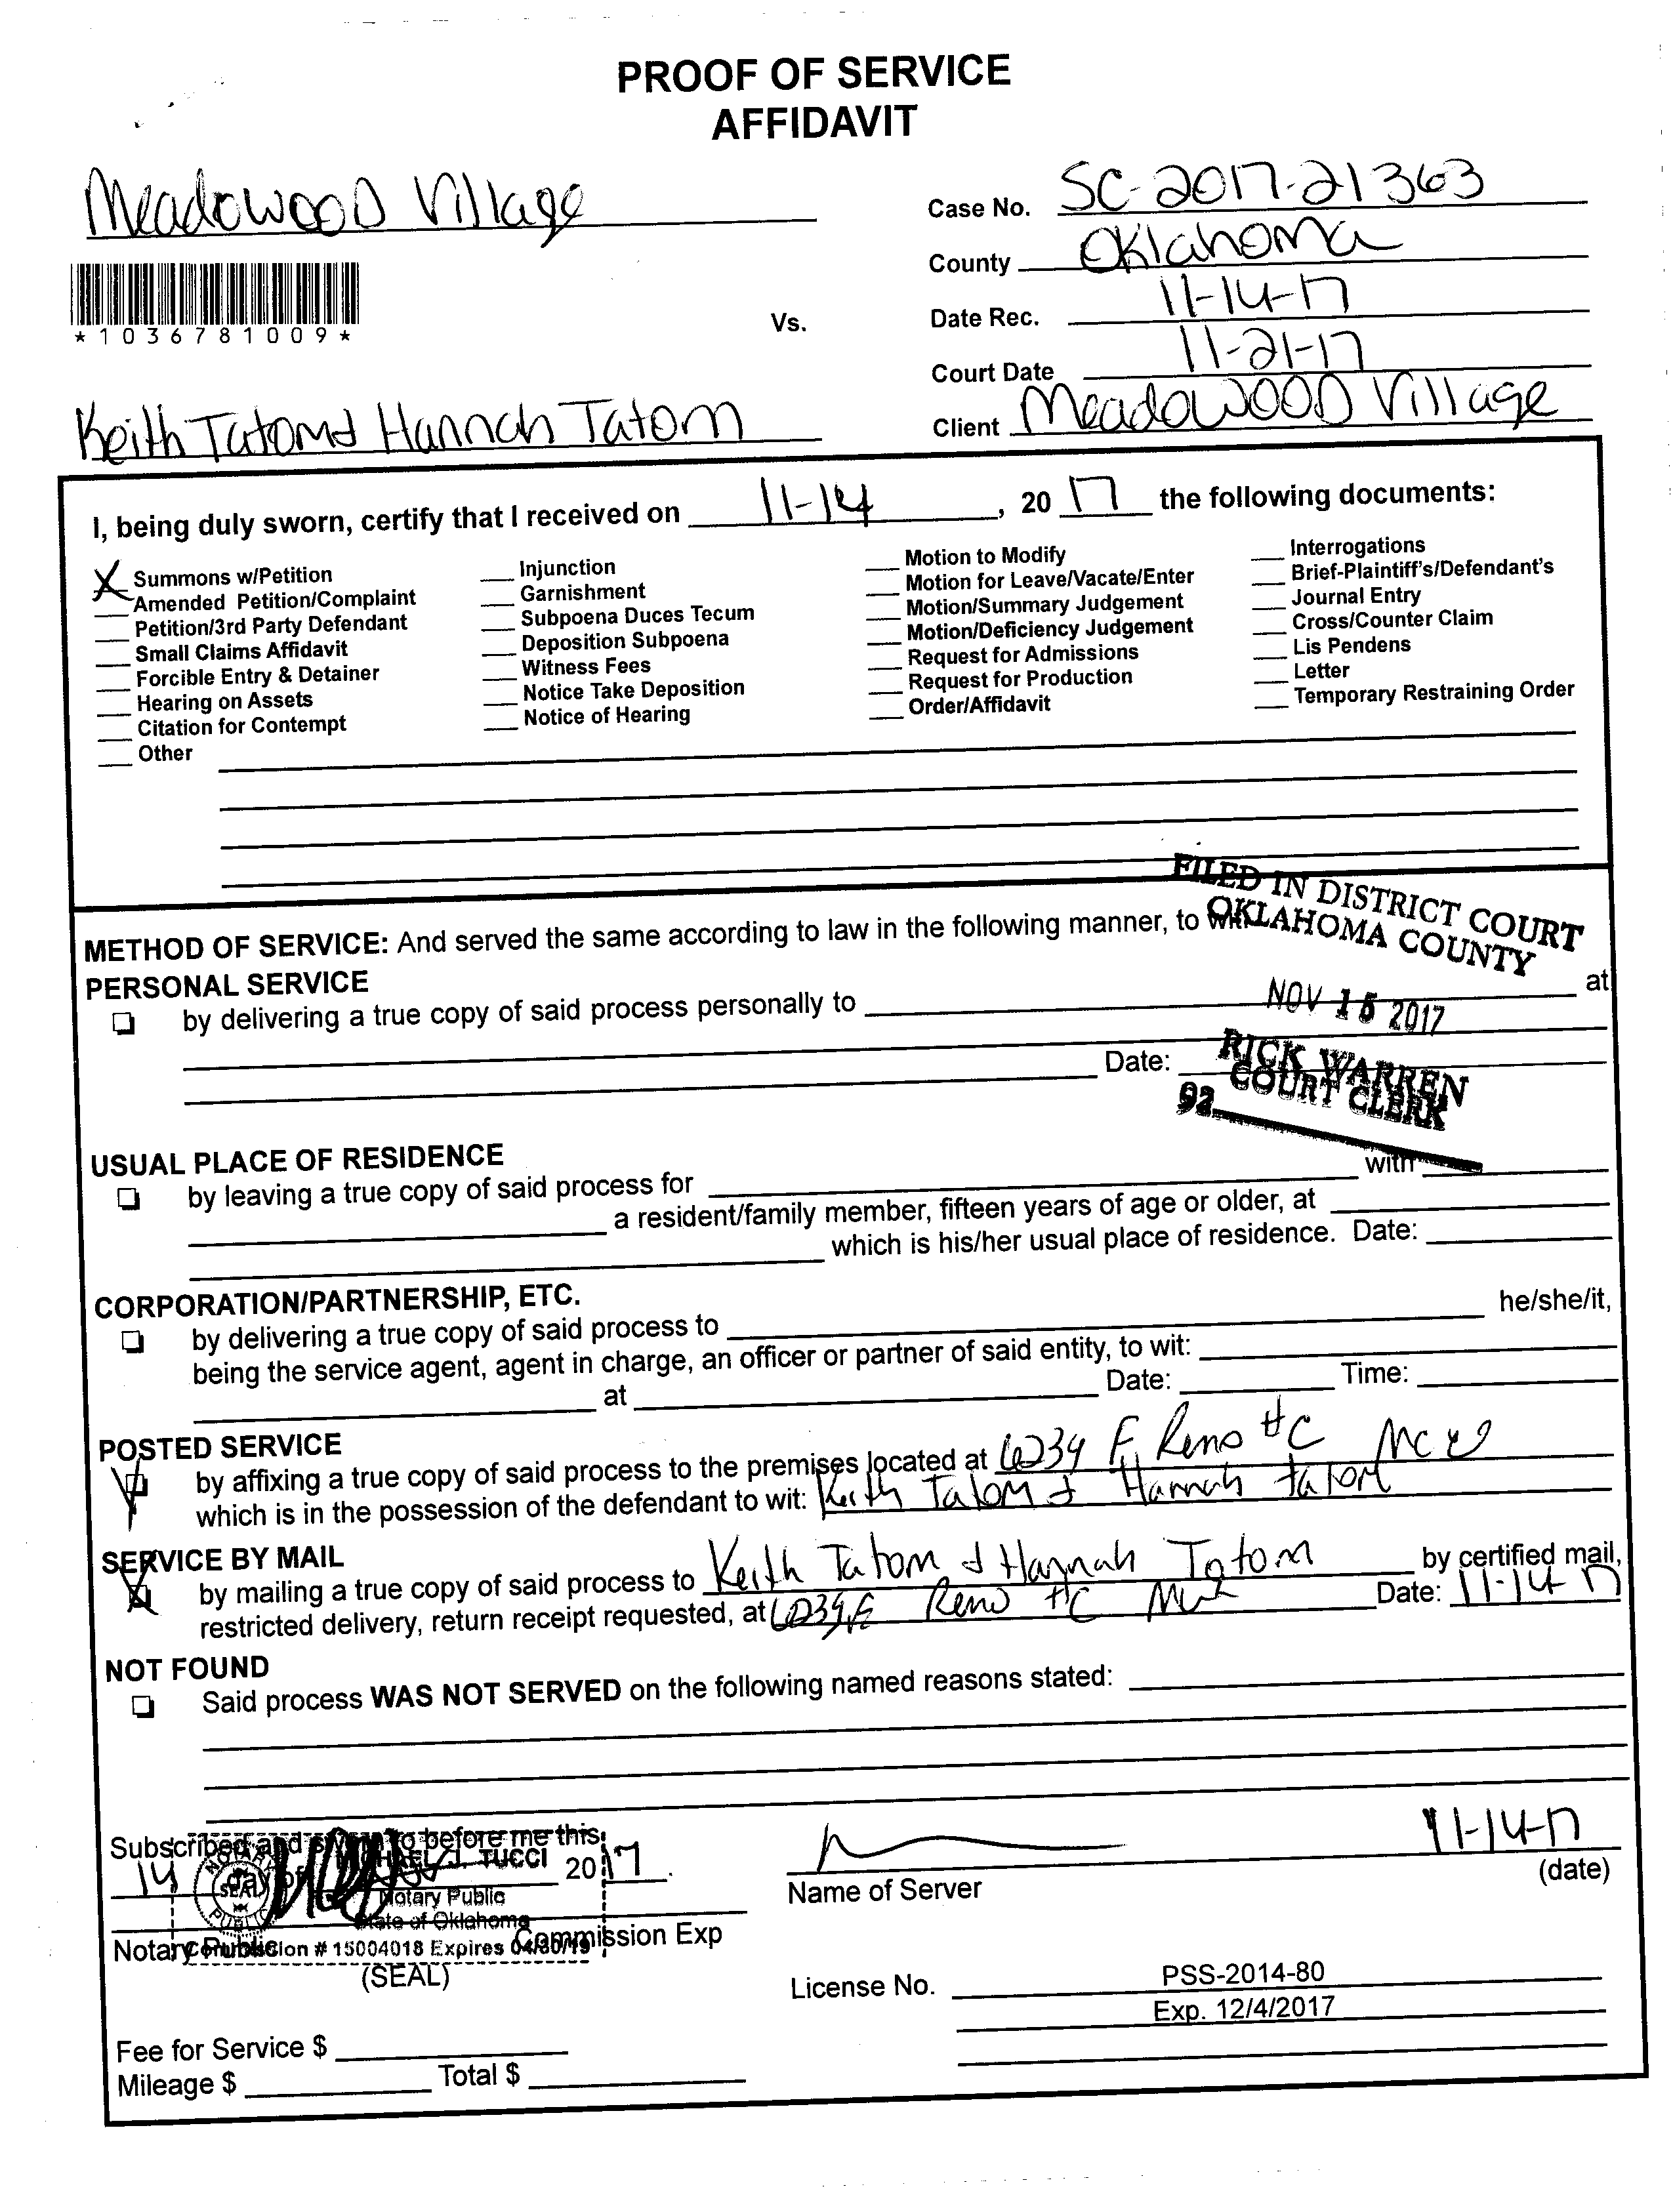 PROOF OF SERVICE
AFFIDAVIT
Meadowood Village
Case No. SC-2017-21363
County Oklahoma
*1036781009*
Vs.
Date Rec. 11-14-17
Court Date 11-21-17
Keith Tatom & Hannah Tatom
Client Meadowood Village
I, being duly sworn, certify that I received on 11-14, 20 17 the following documents:
X Summons w/Petition
Amended Petition/Complaint
Petition/3rd Party Defendant
Small Claims Affidavit
Forcible Entry & Detainer
Hearing on Assets
Citation for Contempt
Other
Injunction
Garnishment
Subpoena Duces Tecum
Deposition Subpoena
Witness Fees
Notice Take Deposition
Notice of Hearing
Motion to Modify
Motion for Leave/Vacate/Enter
Motion/Summary Judgement
Motion/Deficiency Judgement
Request for Admissions
Request for Production
Order/Affidavit
Interrogations
Brief-Plaintiff's/Defendant's
Journal Entry
Cross/Counter Claim
Lis Pendens
Letter
Temporary Restraining Order
FILED IN DISTRICT COURT
OKLAHOMA COUNTY
NOV 15 2017
RICK WARREN
COURT CLERK
92
METHOD OF SERVICE: And served the same according to law in the following manner, to wit:
PERSONAL SERVICE
by delivering a true copy of said process personally to at
Date:
USUAL PLACE OF RESIDENCE
by leaving a true copy of said process for with
a resident/family member, fifteen years of age or older, at
which is his/her usual place of residence. Date:
CORPORATION/PARTNERSHIP, ETC.
by delivering a true copy of said process to he/she/it,
being the service agent, agent in charge, an officer or partner of said entity, to wit:
at Date: Time:
POSTED SERVICE
by affixing a true copy of said process to the premises located at 6239 E Reno #C MWC
which is in the possession of the defendant to wit: Keith Tatom & Hannah Tatom
SERVICE BY MAIL
by mailing a true copy of said process to Keith Tatom & Hannah Tatom by certified mail,
restricted delivery, return receipt requested, at 6239 E Reno #C Date: 11-14-17
NOT FOUND
Said process WAS NOT SERVED on the following named reasons stated:
Subscribed and sworn to before me this
14 day of 20 17.
MICHAEL J. TUCCI
Notary Public
State of Oklahoma
Commission # 15004018 Expires 04/30/19
NOTARY PUBLIC
SEAL
Notary Public Commission Exp
(SEAL)
11-14-17
Name of Server (date)
License No. PSS-2014-80
Exp. 12/4/2017
Fee for Service $
Mileage $ Total $